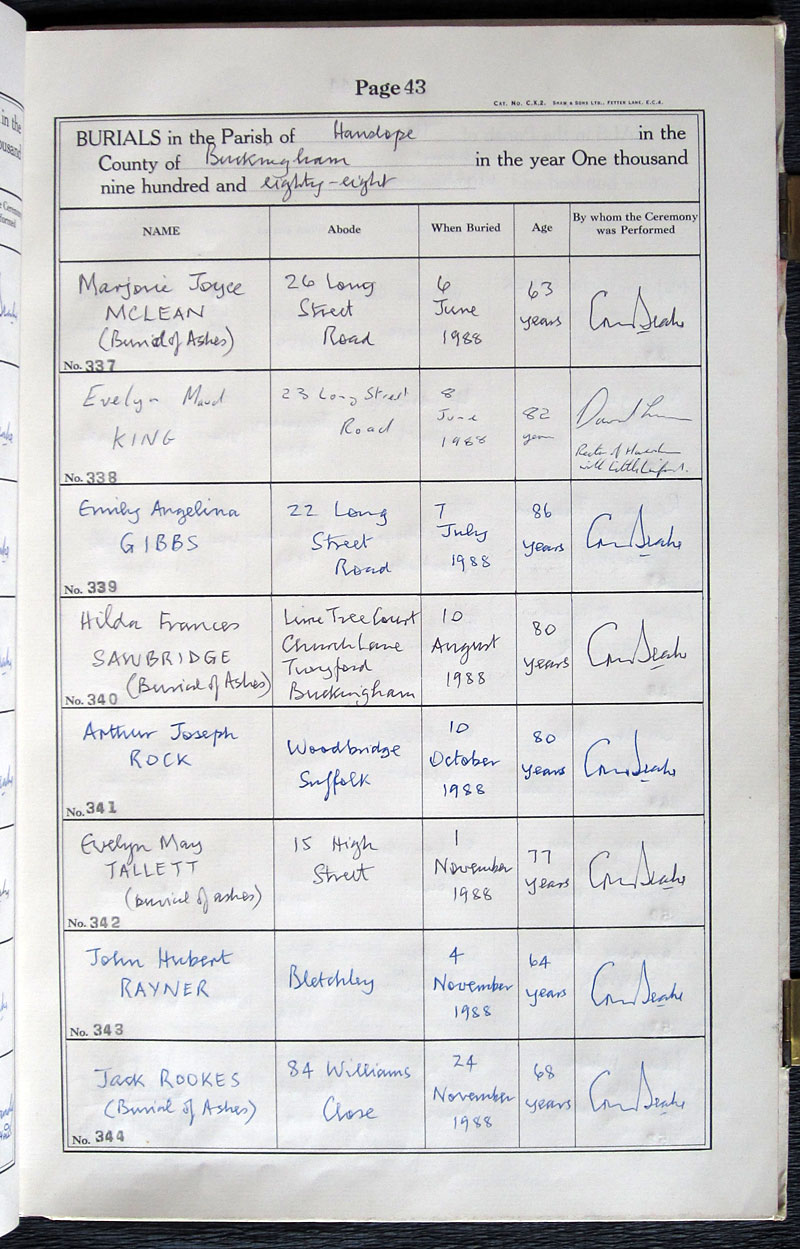 Page 43
CAT. No. C.X.2. SHAW & SONS LTD., FETTER LANE, E.C.4.
BURIALS in the Parish of Hanslope in the
County of Buckingham in the year One thousand
nine hundred and eighty-eight
NAME Abode When Buried Age By whom the Ceremony was Performed
Marjorie Joyce 26 Long 6 63
MCLEAN Street June years
(Burial of Ashes) Road 1988
No. 337
Evelyn Maud 23 Long Street 8 82
KING Road June years
1988
Rector of Haversham
with Little Linford.
No. 338
Emily Angelina 22 Long 7 86
GIBBS Street July years
Road 1988
No. 339
Hilda Frances Lime Tree Court 10 80
SAWBRIDGE Church Lane August years
(Burial of Ashes) Twyford 1988
Buckingham
No. 340
Arthur Joseph Woodbridge 10 80
ROCK Suffolk October years
1988
No. 341
Evelyn May 15 High 1 77
TALLETT Street November years
(burial of ashes) 1988
No. 342
John Hubert Bletchley 4 64
RAYNER November years
1988
No. 343
Jack ROOKES 84 Williams 24 68
(Burial of Ashes) Close November years
1988
No. 344